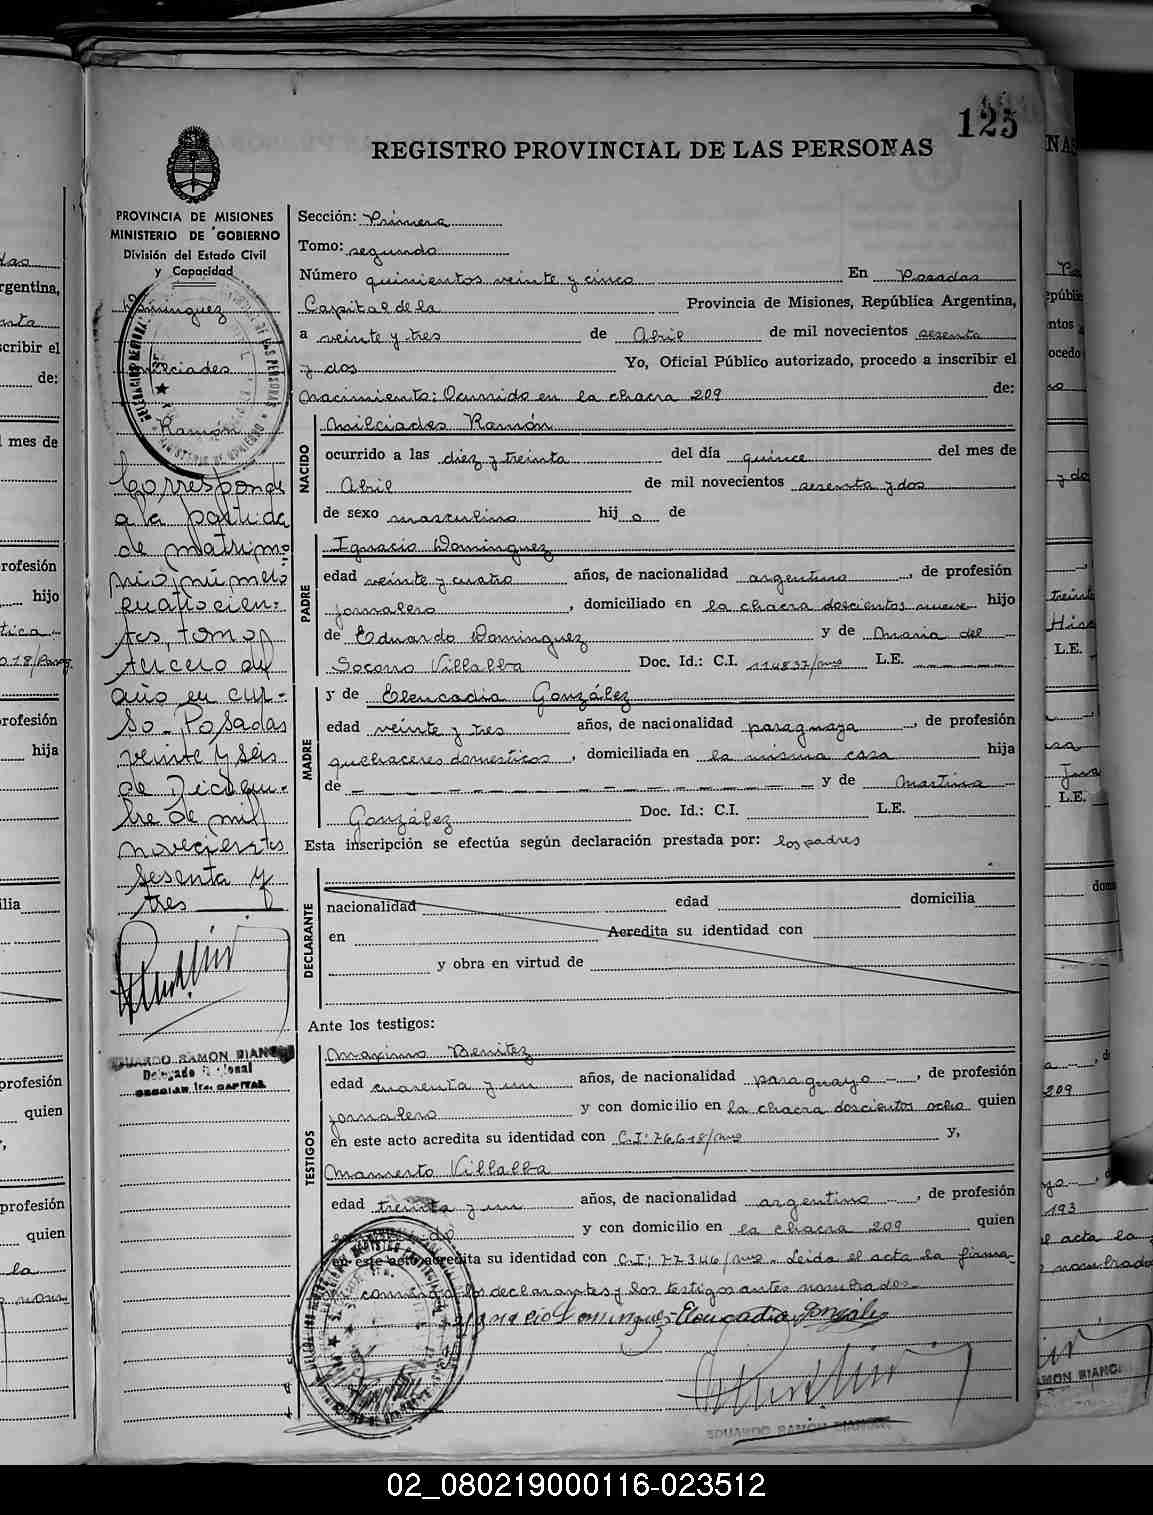 125
REGISTRO PROVINCIAL DE LAS PERSONAS
PROVINCIA DE MISIONES
MINISTERIO DE GOBIERNO
División del Estado Civil
y Capacidad
Dominguez
Milciades
Ramón
Corresponde
a la partida
de matrimo
nio número
cuatrocien-
tos, tomo
tercero del
año en cur-
so. Posadas
veinte y seis
de Diciem-
bre de mil
novecientos
sesenta y
tres
EDUARDO RAMON BIANCHI
Delegado Regional
SECCION 1ra. CAPITAL
Sección: Primera
Tomo: segundo
Número quinientos veinte y cinco En Posadas
Capital de la Provincia de Misiones, República Argentina,
a veinte y tres de Abril de mil novecientos sesenta
y dos Yo, Oficial Público autorizado, procedo a inscribir el
nacimiento: Ocurrido en la chacra 209 de:
NACIDO
Milciades Ramón
ocurrido a las diez y treinta del día quince del mes de
Abril de mil novecientos sesenta y dos
de sexo masculino hij o de
PADRE
Ignacio Dominguez
edad veinte y cuatro años, de nacionalidad argentino, de profesión
jornalero, domiciliado en la chacra doscientos nueve hijo
de Eduardo Dominguez y de Maria del
Socorro Villalba Doc. Id.: C.I. 114837/mnes L.E.
MADRE
y de Eleucadia González
edad veinte y tres años, de nacionalidad paraguaya, de profesión
quehaceres domesticos, domiciliada en la misma casa hija
de y de Martina
González Doc. Id.: C.I. L.E.
Esta inscripción se efectúa según declaración prestada por: los padres
DECLARANTE
nacionalidad edad domicilia
en Acredita su identidad con
y obra en virtud de
Ante los testigos:
TESTIGOS
Maximo Benitez
edad cuarenta y un años, de nacionalidad paraguayo, de profesión
jornalero y con domicilio en la chacra doscientos ocho quien
en este acto acredita su identidad con C.I: 76618/mnes y,
Mamerto Villalba
edad treinta y un años, de nacionalidad argentino, de profesión
y con domicilio en la chacra 209 quien
en este acto acredita su identidad con C.I; 77346/mnes. Leida el acta la firma-
conmigo los declarantes y los testigos antes nombrados
Ignacio Dominguez Eleucadia Gonzalez
EDUARDO RAMON BIANCHI
02_080219000116-023512